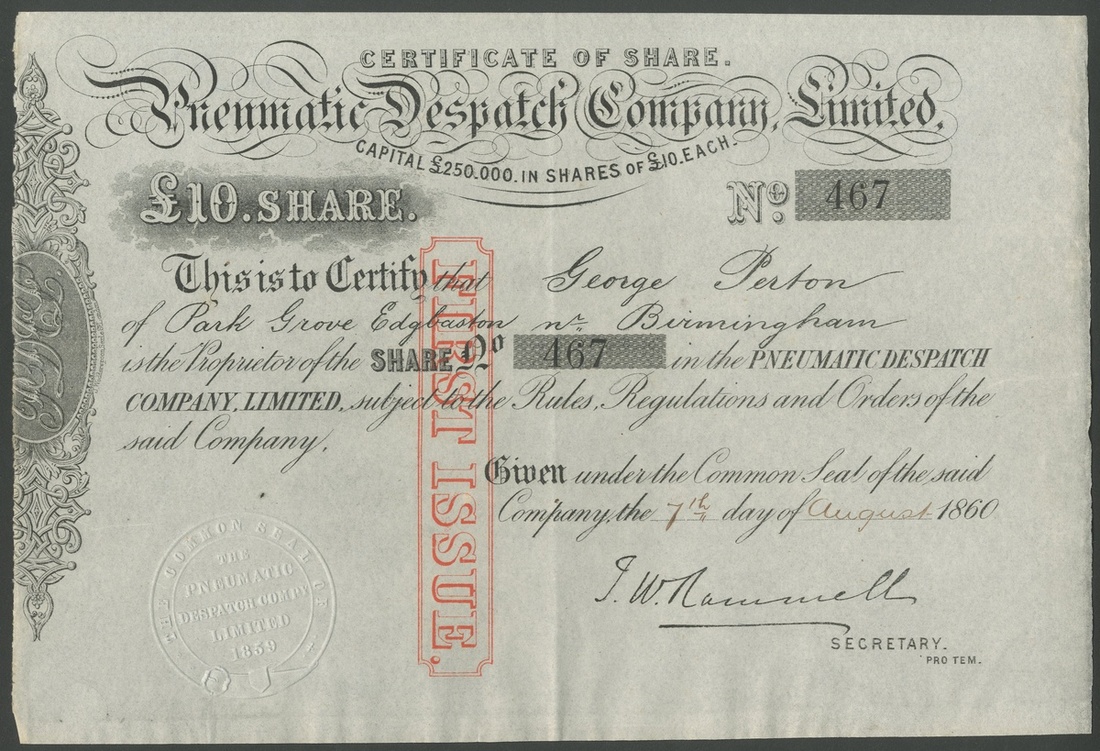 CERTIFICATE OF SHARE.
Pneumatic Despatch Company, Limited,
CAPITAL £250.000. IN SHARES OF £10. EACH.
£10. SHARE.
No. 467
This is to Certify that George Perton
of Park Grove Edgbaston nr. Birmingham
is the Proprietor of the SHARE No 467 in the PNEUMATIC DESPATCH
COMPANY, LIMITED, subject to the Rules, Regulations and Orders of the
said Company.
Given under the Common Seal of the said
Company, the 7th day of August 1860
J. W. Rammell
SECRETARY.
PRO TEM.
FIRST ISSUE.
THE COMMON SEAL OF
THE
PNEUMATIC
DESPATCH COMPY
LIMITED
1859